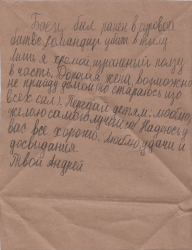 Боец был ранен в суровой
битве, командир убит в тылу
лишь я хромой, раненный ползу
в часть. Дорогая жена, возможно
не приду домой (но стараюсь изо
всех сил). Передай детям: люблю,
желаю самого лучшего! Надеюсь у
вас все хорошо. Люблю, удачи и
досвидания.
Твой Андрей.